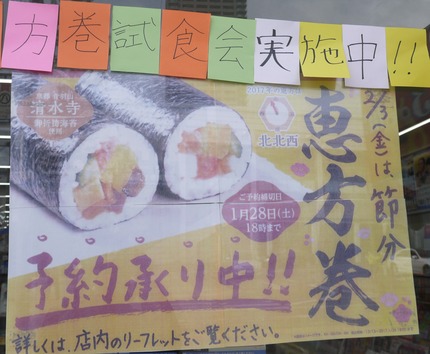 方巻試食会実施中!!
2017年の恵方は
北北西
京都 音羽山
清水寺
祈祷海苔
使用
2/3(金)は節分
恵方巻
ご予約締切日
1月28日(土)
18時まで
予約承り中!!
詳しくは、店内のリーフレットをご覧ください。